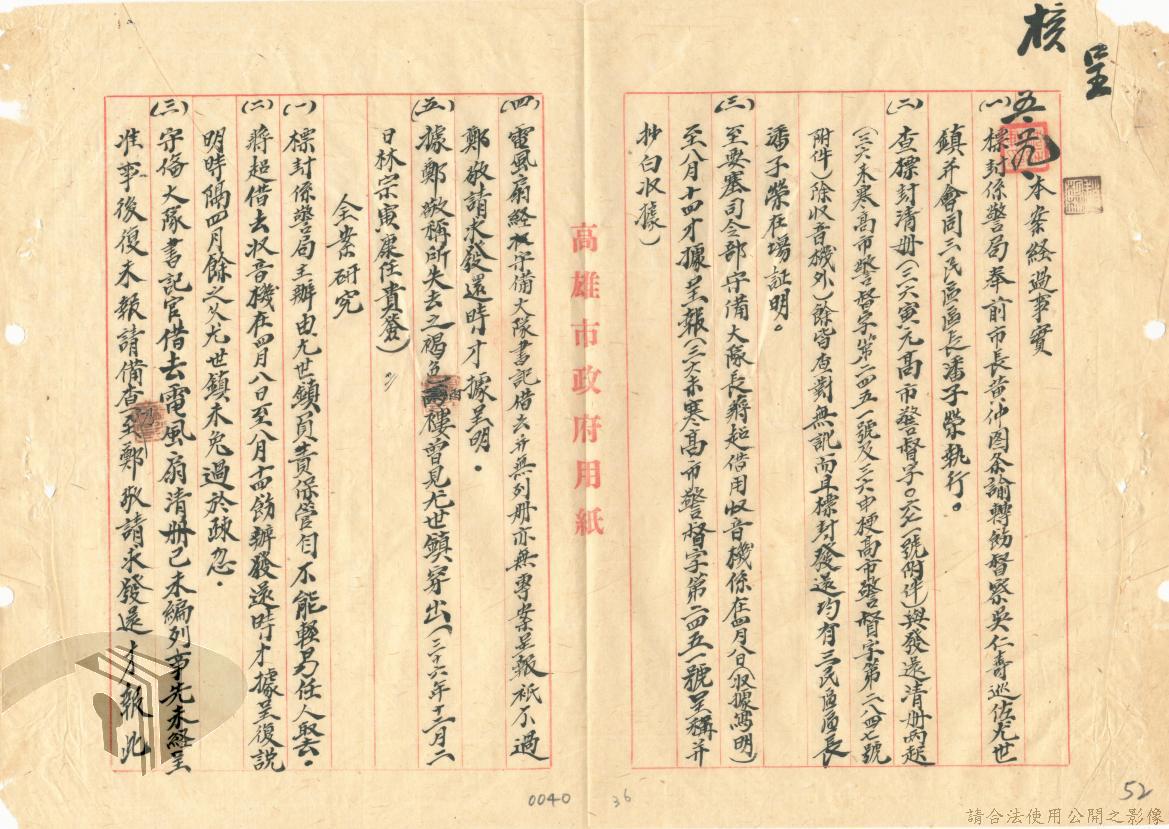 核
呈
本案經過事實
(一)標封係警局奉前市長黃仲图条諭轉飭督察吳仁壽巡佐尤世
鎮并會同三民區區長潘子榮執行。
(二)查標封清册(三六寅元髙市警督字〇六七一號附件)與發還清册两起
(三六未寒高市警督字第二四五一號及三六申梗高市警督字第二八四七號
附件)除收音機外)餘皆查對無訛而且標封發還均有三民區區長
潘子榮在場証明。
(三)至要塞司令部守備大隊長蔣超借用收音機係在四月八日(収據寫明)
至八月十四才據呈報(三六未寒高市警督字第二四五一號呈稱并
抄白収據)
高雄市政府用紙
(四)電風扇經守備大隊書記借去并無列册亦無專案呈報祇不過
鄭敬請求發還時才據呈明。
(五)據鄭敬稱所失去之褐色西褸曾見尤世鎮穿出(三十六年十二月二
日林宗寅康任貴簽)
全案研究
(一)標封係警局主辦由尤世鎮員責保管自不能輕易任人取去。
(二)蔣超借去収音機在四月八日至八月十四飭辦發還時才據呈復説
明時隔四月餘之久尤世鎮未免過於疎忽。
(三)守俻大隊書記官借去電風扇清册已未編列事先未経呈
准事後復未報請備查至鄭敬請求發還才報此
0040
36
52
請合法使用公開之影像